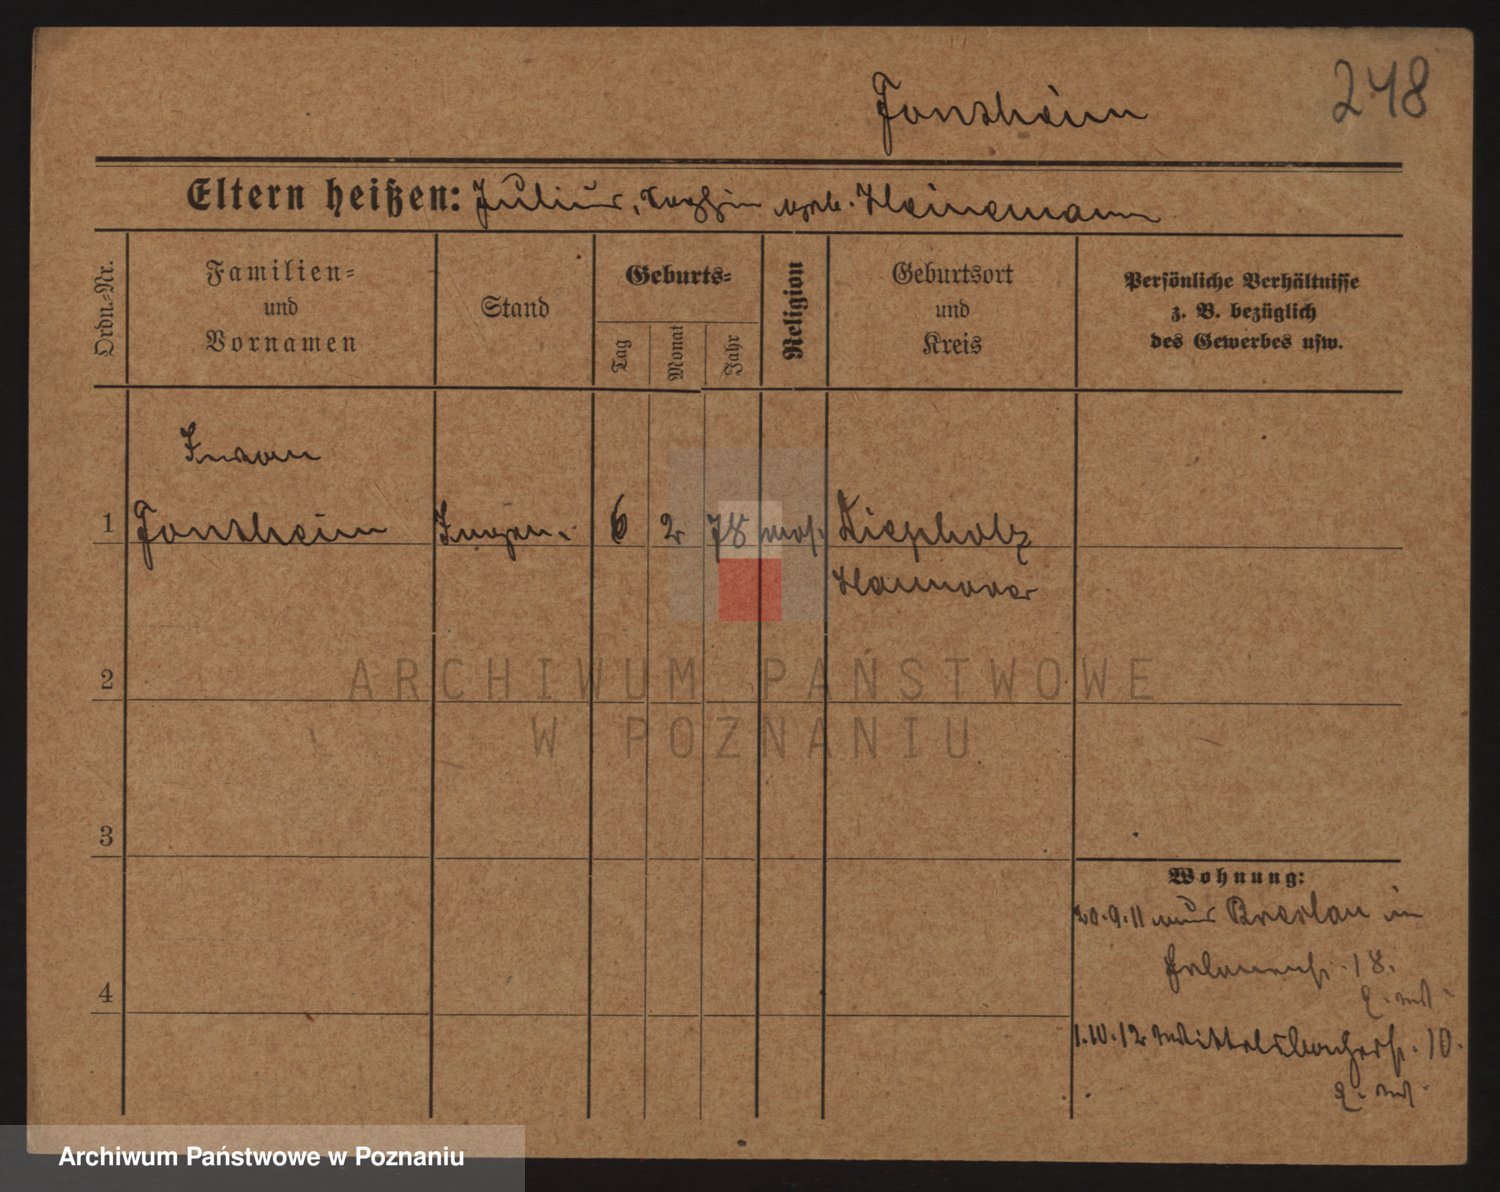 248
Fontheim
Eltern heißen: Julius, Sophie geb. Heinemann
Ordn.-Nr.
Familien-
und
Vornamen
Stand
Geburts-
Tag
Monat
Jahr
Religion
Geburtsort
und
Kreis
Persönliche Verhältnisse
z. B. bezüglich
des Gewerbes usw.
1
Fontheim
6
2
78
mos.
Diepholz
Hannover
2
ARCHIWUM PAŃSTWOWE
W POZNANIU
3
4
Wohnung:
20.9.11 aus Breslau in
18.
1.10.12 Wittelsbacherst. 10.
Archiwum Państwowe w Poznaniu